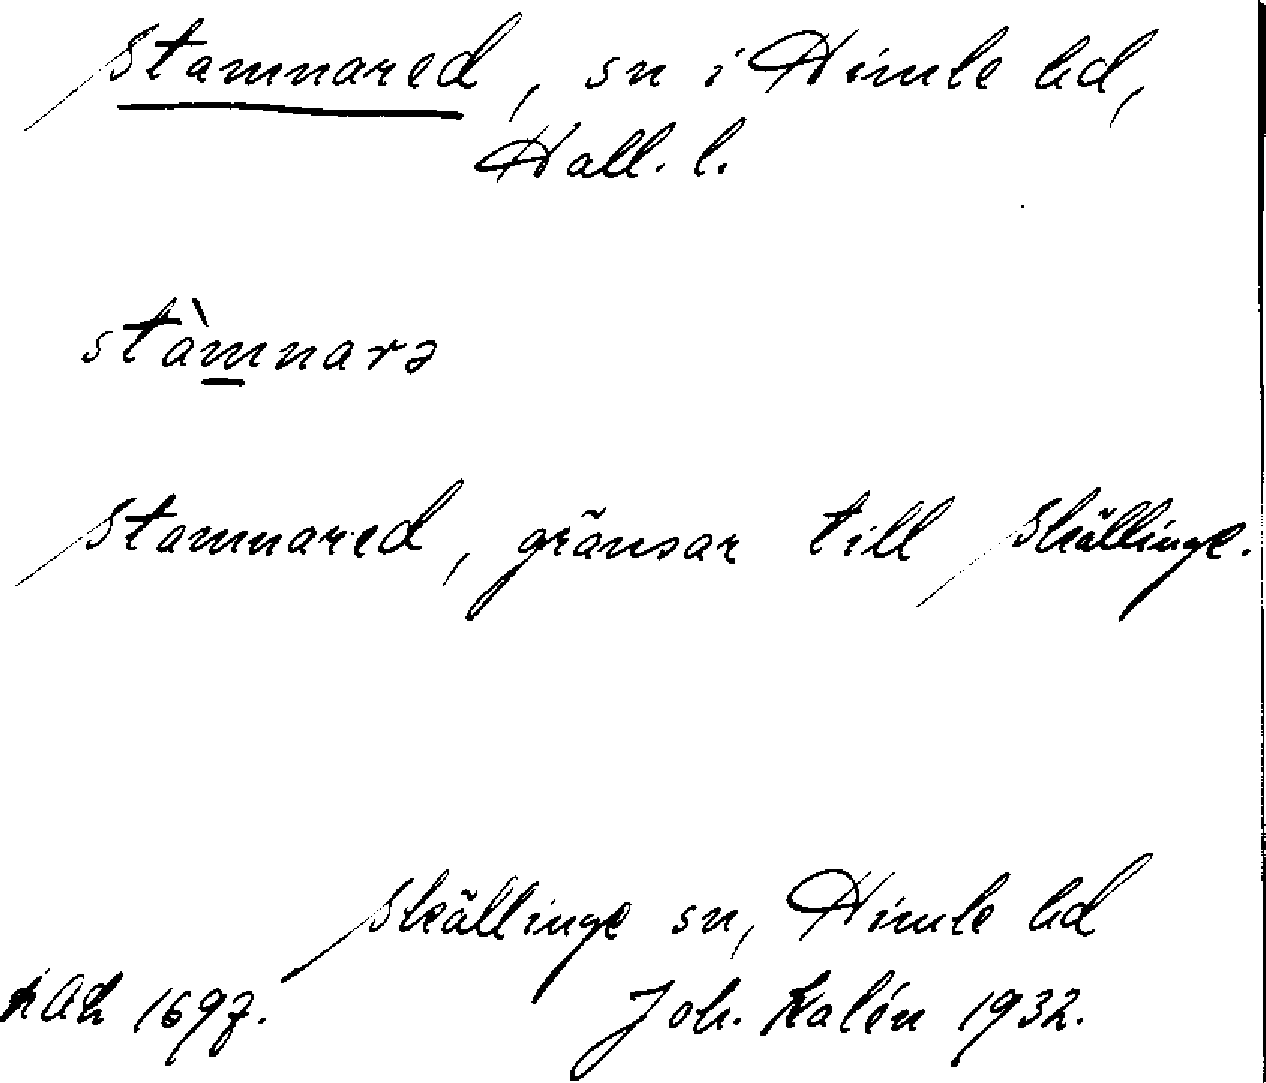 Stamnared, sn i Himle hd,
Hall. l.
stàmnarə
Stamnared, gränsar till Skällinge.
Skällinge sn, Himle hd
1697. Joh. Kalén 1932.